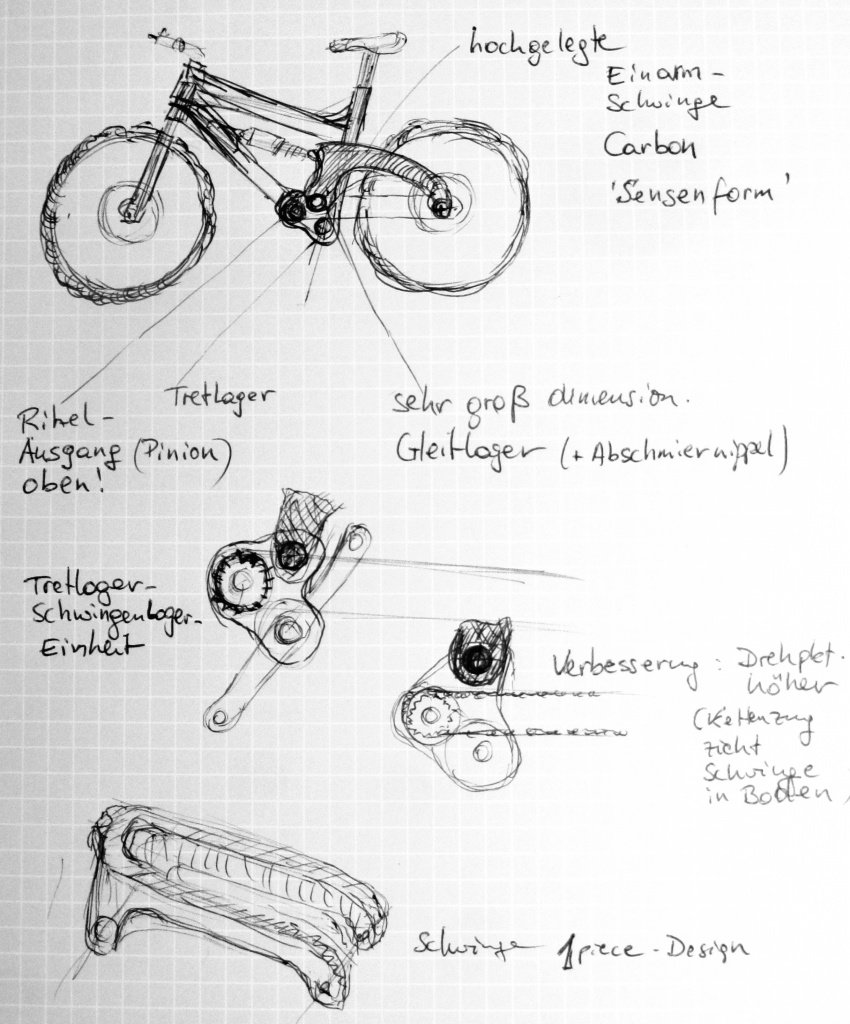 hochgelegte
Einarm-
Schwinge
Carbon
'Sensenform'
Tretlager
Ritzel-
Ausgang (Pinion)
oben!
sehr groß dimension.
Gleitlager (+ Abschmiernippel)
Tretlager-
Schwingenlager-
Einheit
Verbesserung : Drehpkt.
höher
(Kettenzug
zieht
Schwinge
in Boden
Schwinge 1piece-Design